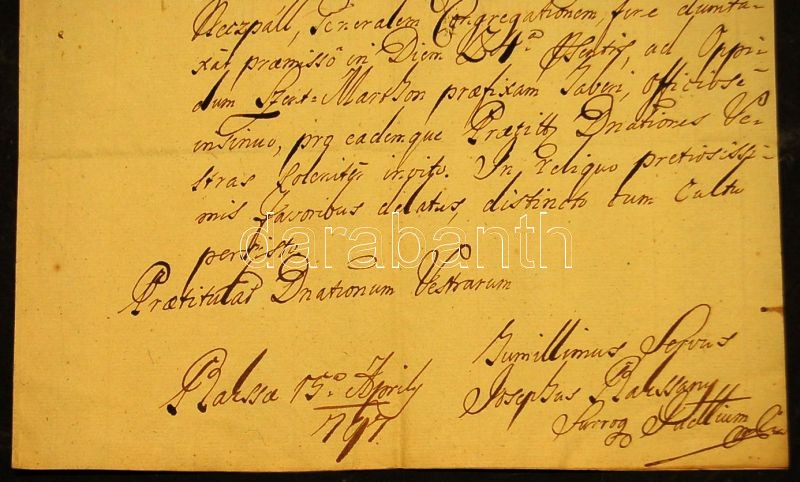 Neczpáll, Generalem Congregationem, fine dumta-
xat præmisso in Diem 24ª Mensis, ad Oppi-
dum Szent=Marthon præfixam haberi, officiose
insinuo, prq eademque Prætitt Dnationes Ve-
stras solenitr invito. In reliquo pretiosissi-
mis favoribus delatus, distincto cum Cultu
persisto
Prætitulat Dnationum Vestrarum
15ª Aprilis
797.
humillimus Servus
Josephus
Surrog
darabanth